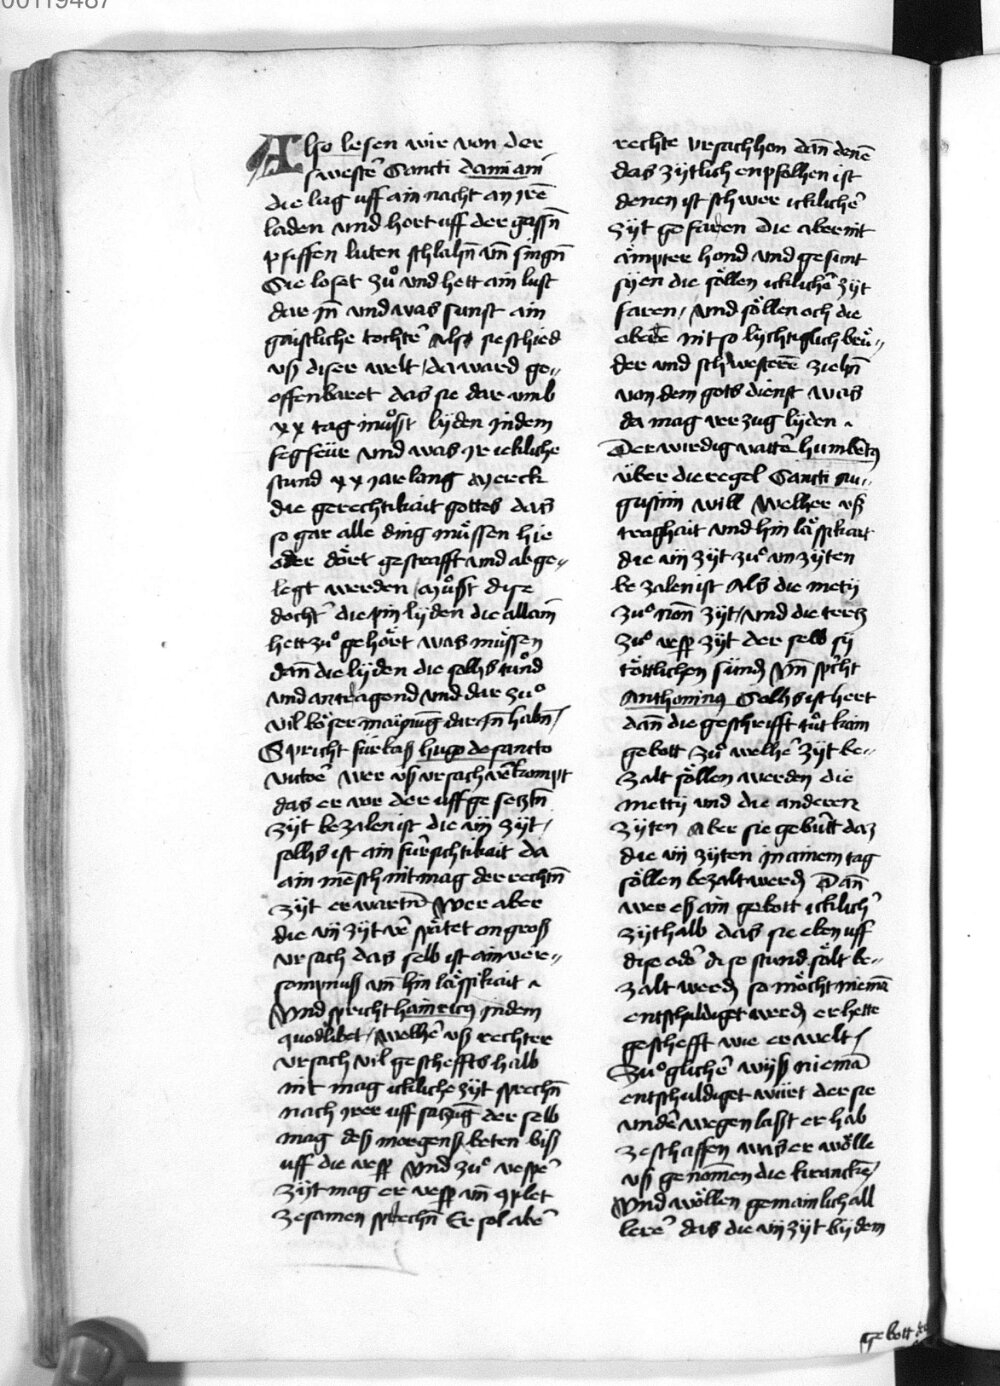 00119487
Also lesen wir von der
swestē Sancti damiani
die lag uff ain nacht an jrē
laden vnd hort uff der gassn̄
pfiffen luten schlahn̄ vn̄ singn̄
Sie loset zuͦ vnd hett ain lust
dar jn̄ vnd was sunst ain
gaistliche tochtē Also sie schied
vß diser welt / da ward ge-
offenbaret das sie dar vmb
xx tag muͦsst lyden in dem
fegfeür vnd was jr ickliche
stund xx jar lang Merck
die gerechtikait gottes das
so gar alle ding muͤssen hie
oder doͤrt gestrafft vnd abge-
legt werden / muͦsst dise
docht̄ die pin lyden die allain
hett zuͦ gehoͤrt was muͤssen
dan̄ die lyden die solhs tuͦnd
vnd antragond vnd dar zuͦ
vil boͤser maynūg dar jn̄ habn̄ /
Spricht fürbaß hugo de sancto
victorē wer vß vrsach v̄kompt
das er vor der uff ge setztn̄
zyt bezalen ist die vij zyt /
solhs ist ain fürsichtikait da
ain mēsch nit mag der rechtn̄
zyt erwartn̄ Wer aber
die vij zyt v̄ spaͤtet on groß
vrsach das selb ist ain ver-
sompnuß vn̄ hin laͤssikait
Vnd spricht hainricus in dem
quodlibet / Welhē vß rechter
vrsach vil gescheffts halb
nit mag ickliche zyt sprechn̄
nach irer uff satzūg der selb
mag deß morgens beten biß
uff die vesp̄ Vnd zuͦ vespē
zyt mag er vesp̄ vn̄ 9plet
zesamen sprechn̄ Er sol abē
rechte vrsach hon dan̄ denē
das zytlich enpfolhen ist
denen ist schwer icklichē
zyt ge faren die aber nit
aͤmpter hond vnd gesunt
syen die soͤllen icklichē zyt
faren / Vnd soͤllen och die
oberē nit so lychtiglich bruͤ-
der vnd schwesterē ziehn̄
von dem gots dienst was
da mag ver zug lyden
Der wirdig vattē humbertus
über die regel Sancti Au-
gustini will Welher vß
traghait vnd hin laͤssikait
die vij zyt zuͦ vnzyten
be zalen ist Als die mety
zuͦ non zyt / vnd die tertz
zuͦ vesp̄ zyt der selb sy
toͤttlichen sünd Vn̄ spricht
Anthoninus Solhs ist hert
dan̄ die geschrifft tuͦt kain
gebott zuͦ welhē zyt be-
zalt soͤllen werden die
metty vnd die anderen
zyten Aber sie gebütt daz
die vij zyten in ainem tag
soͤllen bezalt werdn̄ Dan̄
wer eß ain gebott icklich̄
zyt halb das sie eben uff
dise odē dise stund soͤlt be-
zalt werdn̄ so moͤcht niemā
entschuldiget werdn̄ er hette
geschefft wie er welt /
Zuͦ glichē wyß niemā
entschuldiget würt der sie
vnderwegen lasst er hab
ze schaffen was er woͤlle
vß genomen die kranckē /
Vnd woͤllen gemainlich all
lerē das die vij zyt by dem
gebott